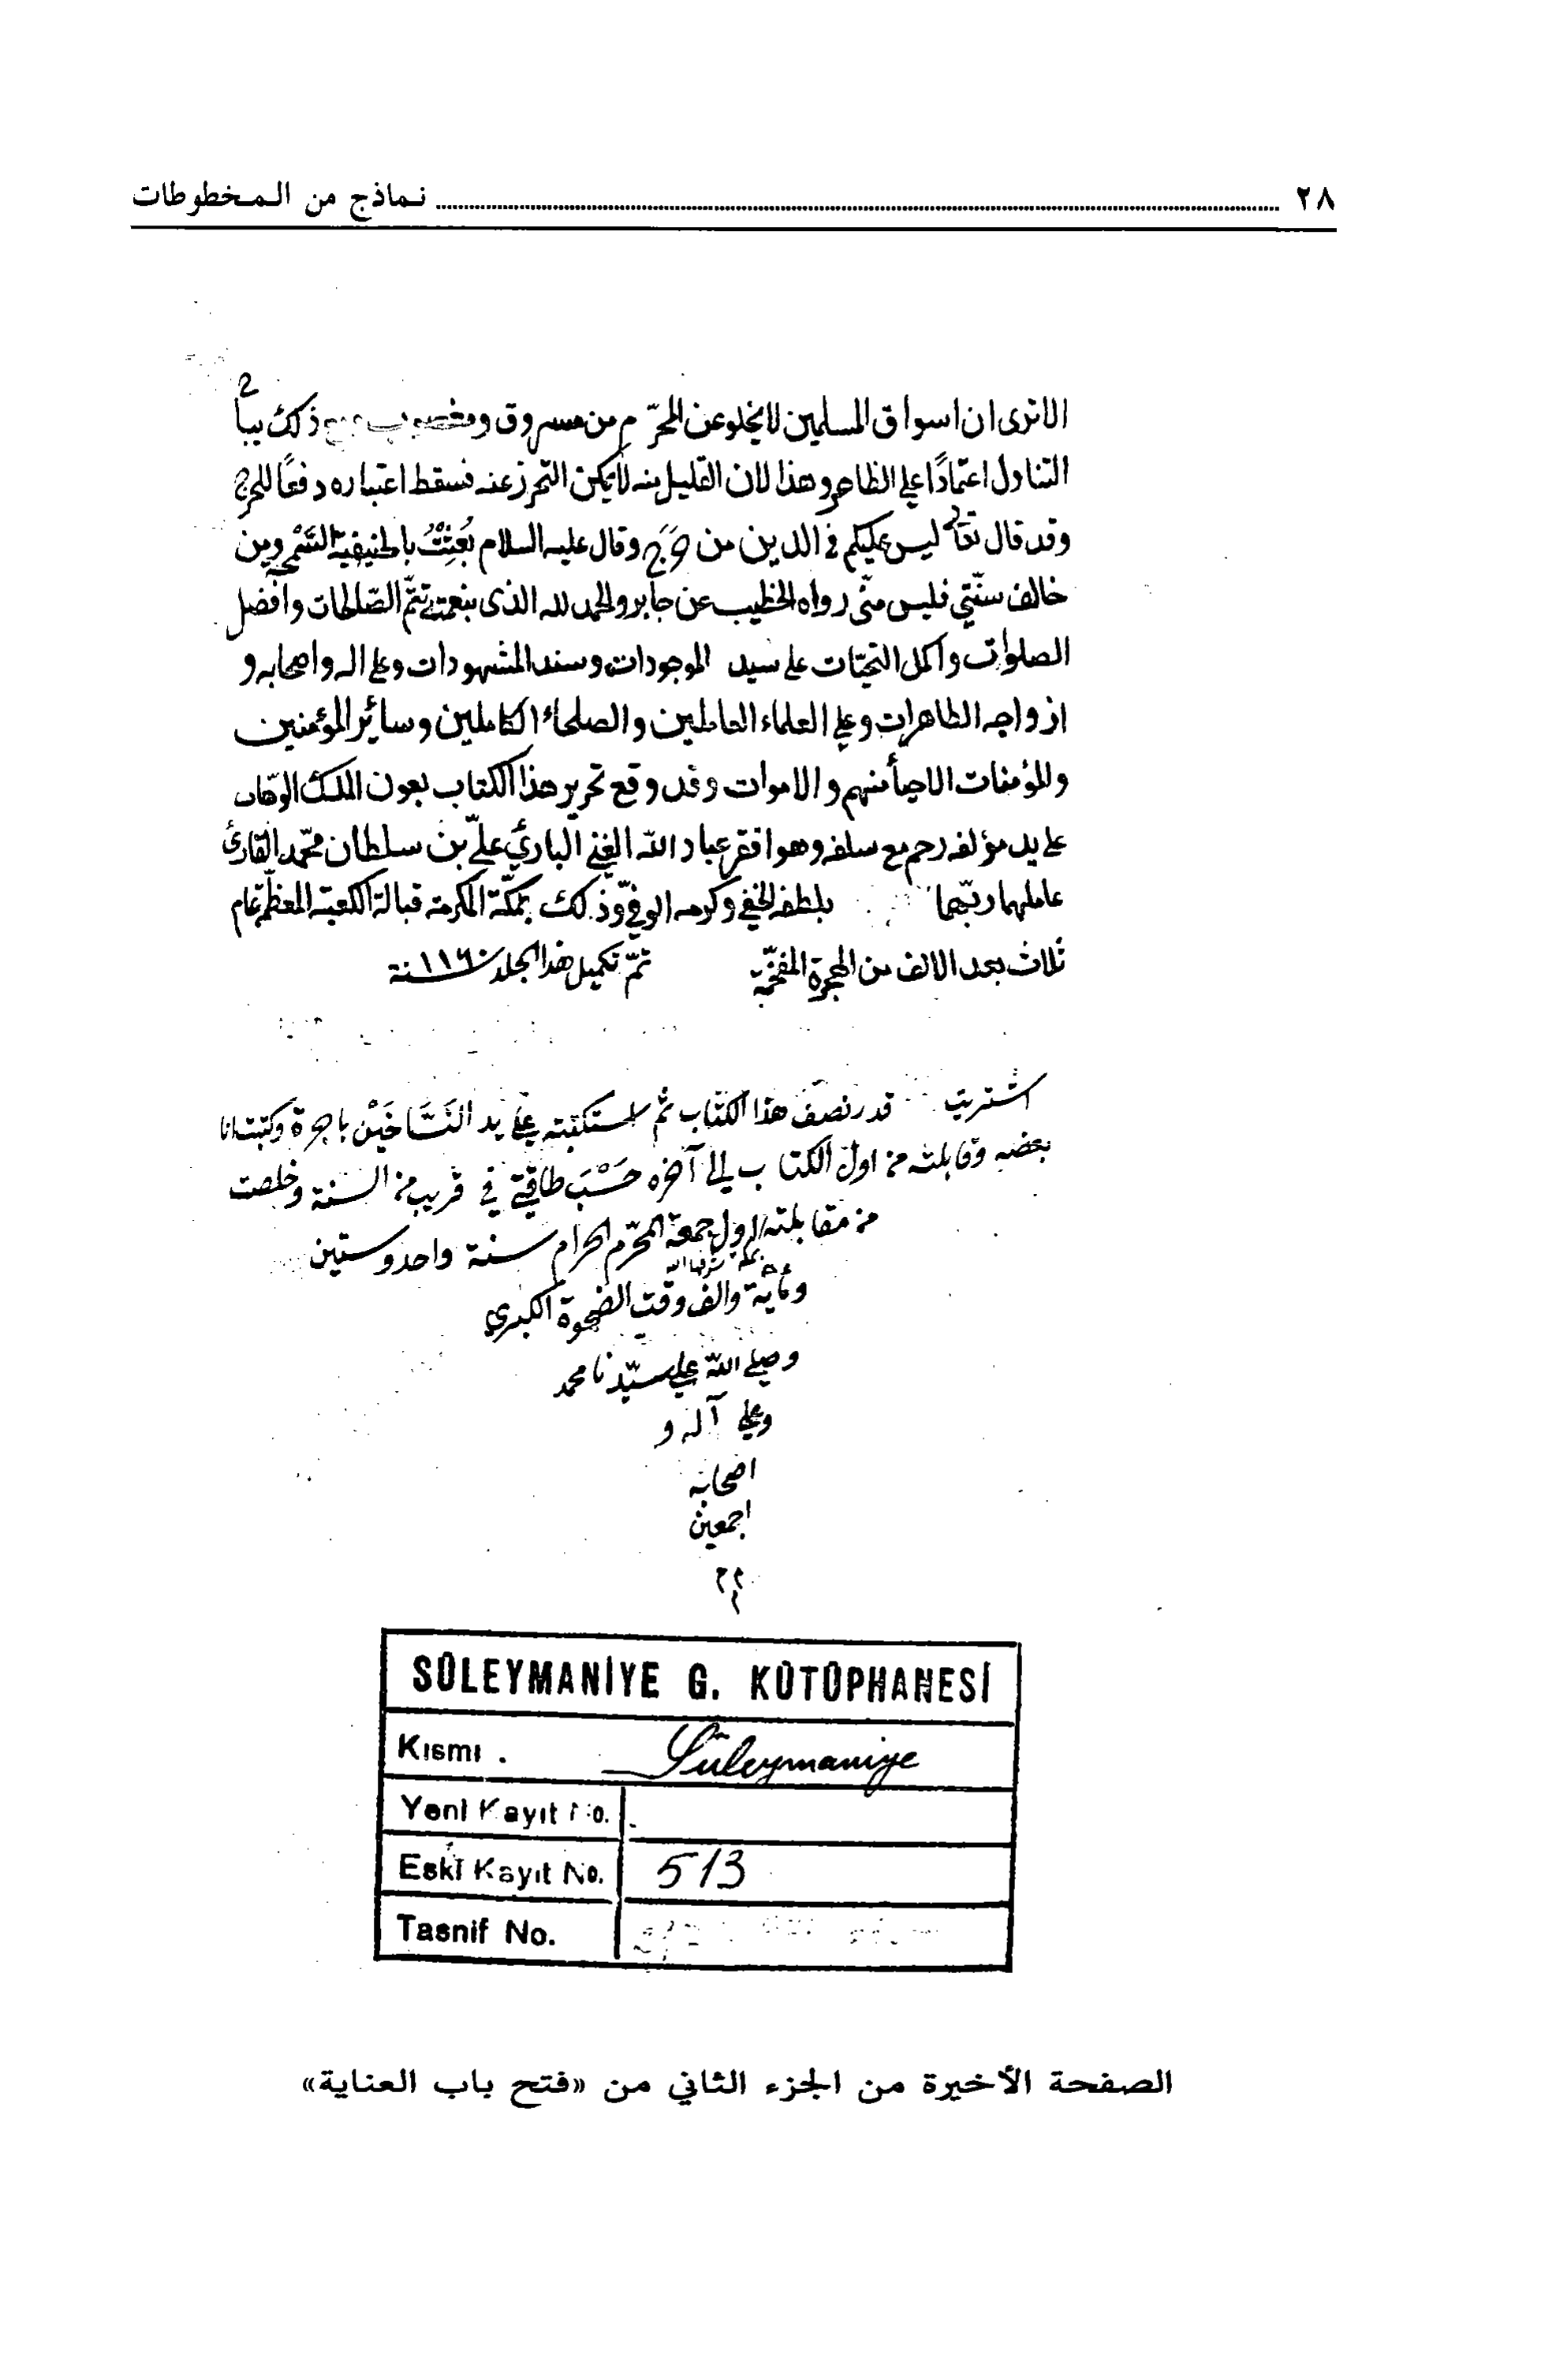 ٢٨ ........ نماذج من المخطوطات
الاترى ان اسواق المسلمين لا يخلو عن المحرّم من مسروق ومغصوب ومع ذلك يباح
التناول اعتمادًا على الظاهر وهذا لان القليل منه لا يمكن التحرز عنه فسقط اعتباره دفعًا للحرج
وقد قال تعالى ليس عليكم في الدين من حَرَج وقال عليه السلام بُعِثْتُ بالحنيفيّة السَّمْحة ومن
خالف سنّتي فليس منّى رواه الخطيب عن جابر والحمد لله الذى بنعمته تتمّ الصّالحات وافضل
الصلوات واكمل التحيّات على سيد الموجودات وسند المشهودات وعلى اله واصحابه و
ازواجه الطاهرات وعلى العلماء العاملين والصلحاء الكاملين وسائر المؤمنين
والمؤمنات الاحياء منهم والاموات وقد وقع تحرير هذا الكتاب بعون الملك الوهّاب
على يد مؤلفه رحم مع سلفه وهو افقر عباد الله الغني الباري عليّ بن سلطان محمّد القارئ
عاملهما ربّهما بلطفه الخفي وكرمه الوفيّ وذلك بمكّة المكرمة قبالة الكعبة المعظّمة عام
ثلاث بعد الالف من الهجرة المفخّمة تمّ تكميل هذا الجلد سنة ١١٦٠
اشتريت قدر نصف هذا الكتاب ثم استكتبته على يد النَسَّاخَيْن باجرة وكتبت انا
بعضه وقابلته من اول الكتاب الى آخره حَسْبَ طاقتي في قريب من السنة وخلصت
من مقابلته اول جمعة المحرّم الحرام سنة واحد وستين
بمكة شرفها الله
ومائة والف وقت الضحوة الكبرى
وصلى الله على سيّدنا محمد
وعلى آله و
اصحابه
اجمعين
SÜLEYMANİYE G. KÜTÜPHANESİ
Kısmı . Süleymaniye
Yeni Kayıt No.
Eski Kayıt No. 513
Tasnif No.
الصفحة الأخيرة من الجزء الثاني من «فتح باب العناية»